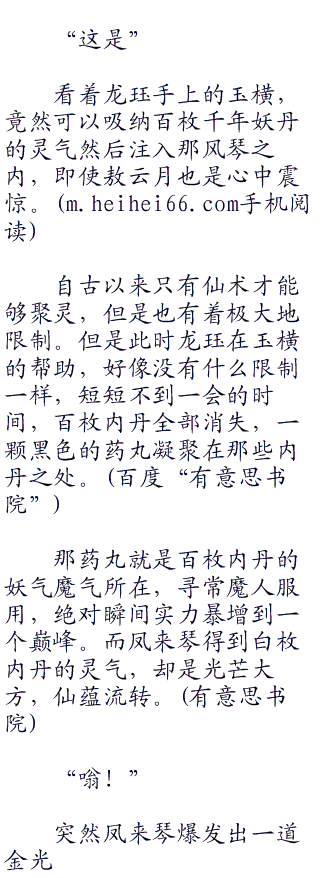 “这是”
看着龙珏手上的玉横，
竟然可以吸纳百枚千年妖丹
的灵气然后注入那风琴之
内，即使敖云月也是心中震
惊。(m.heihei66.com手机阅
读)
自古以来只有仙术才能
够聚灵，但是也有着极大地
限制。但是此时龙珏在玉横
的帮助，好像没有什么限制
一样，短短不到一会的时
间，百枚内丹全部消失，一
颗黑色的药丸凝聚在那些内
丹之处。(百度“有意思书
院”)
那药丸就是百枚内丹的
妖气魔气所在，寻常魔人服
用，绝对瞬间实力暴增到一
个巅峰。而凤来琴得到白枚
内丹的灵气，却是光芒大
方，仙蕴流转。(有意思书
院)
“嗡！”
突然凤来琴爆发出一道
金光